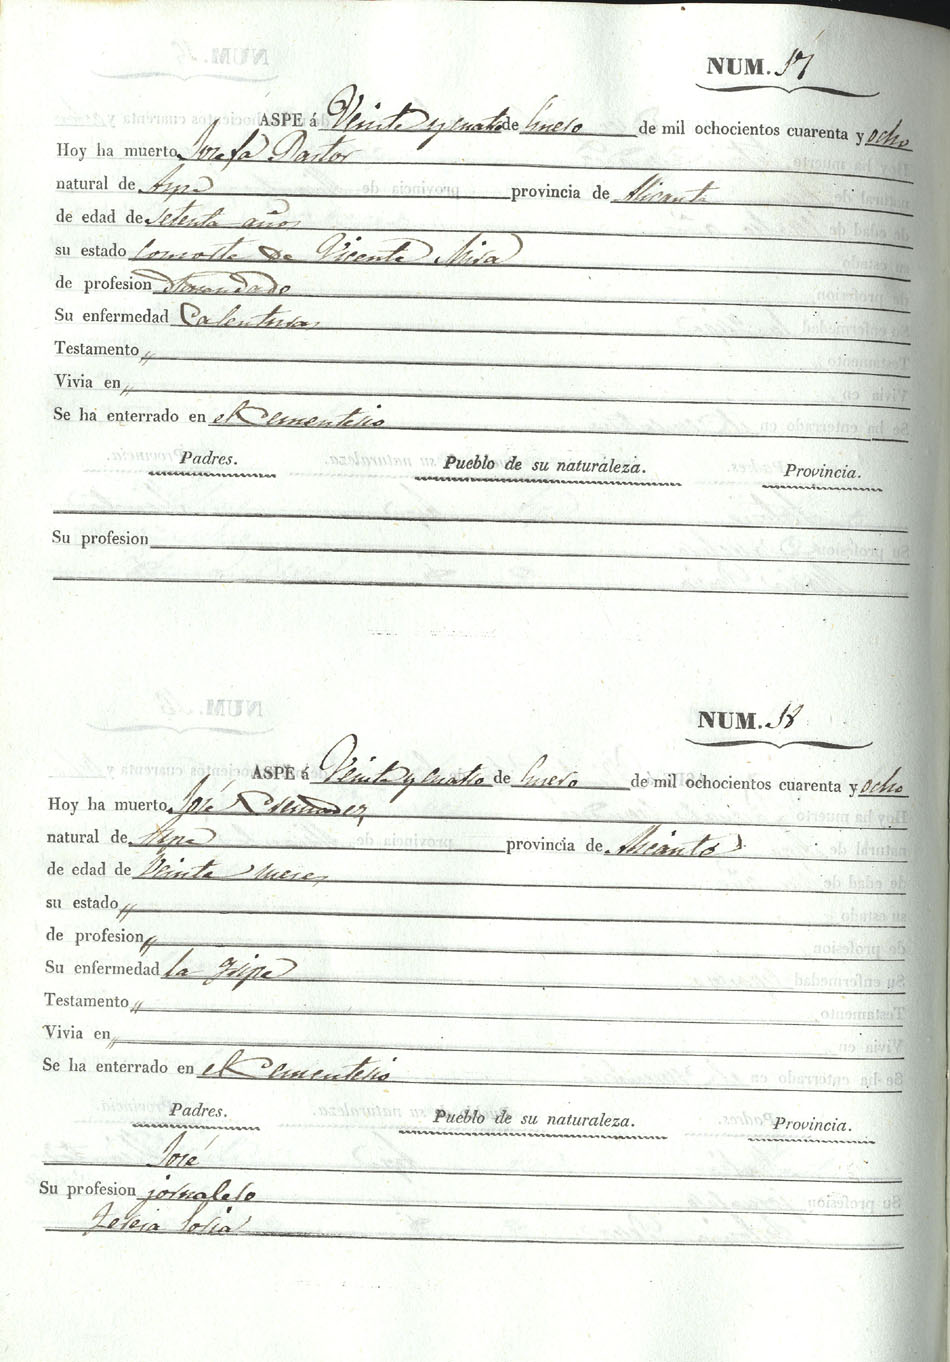 NUM. 17
ASPE á Veinte y cuatro de Enero de mil ochocientos cuarenta y ocho
Hoy ha muerto Josefa Pastor
natural de Aspe provincia de Alicante
de edad de setenta años
su estado consorte de Vicente Mira
de profesion
Su enfermedad Calentura
Testamento „
Vivia en „
Se ha enterrado en el Cementerio
Padres. Pueblo de su naturaleza. Provincia.
Su profesion
NUM. 18
ASPE á Veinte y cuatro de Enero de mil ochocientos cuarenta y ocho
Hoy ha muerto José
natural de Aspe provincia de Alicante
de edad de Veinte meses
su estado „
de profesion „
Su enfermedad la gripe
Testamento „
Vivia en „
Se ha enterrado en el Cementerio
Padres. Pueblo de su naturaleza. Provincia.
José
Su profesion jornalero